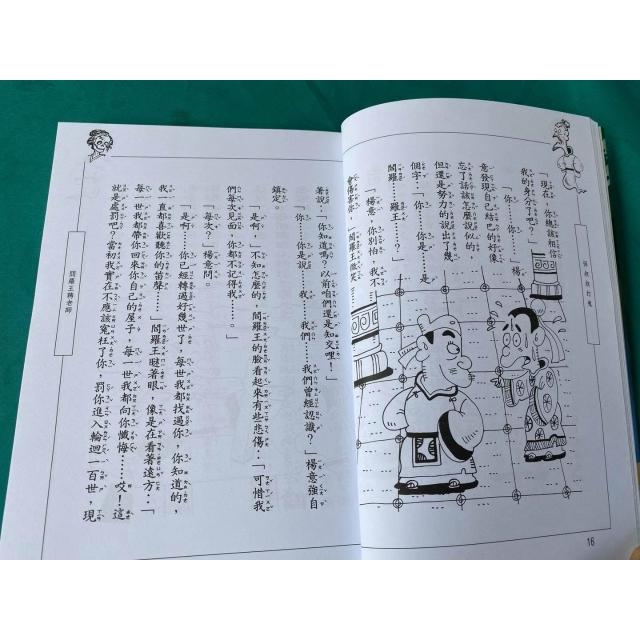 「現在，你總該相信
我的身分了吧？」
「你……你……」楊
意發現自己結巴的好像
忘了話該怎麼說似的，
但還是努力的說出了幾
個字：「你……你是……是
閻羅……羅王……？」
「楊意，你別怕，我不
會傷害你。」閻羅王微笑
16
著說：「你知道嗎？以前咱們還是知交哩！」
「你……你是說……我……我們……我們曾經認識？」楊意強自
鎮定。
「是啊。」不知怎麼的，閻羅王的臉看起來有些悲傷：「可惜我
們每次見面，你都不記得我……。」
「每次？」楊意問。
「是啊……你已經轉過好幾世了，每世我都找過你，你知道的，
我一直都喜歡聽你的笛聲……」閻羅王瞇著眼，像是在看著遠方：「
每一世我都帶你回來你自己的屋子，每一世我都向你懺悔……哎！這
就是處罰吧？當初我實在不應該冤枉了你，罰你進入輪迴一百世，現
閻羅王轉老師